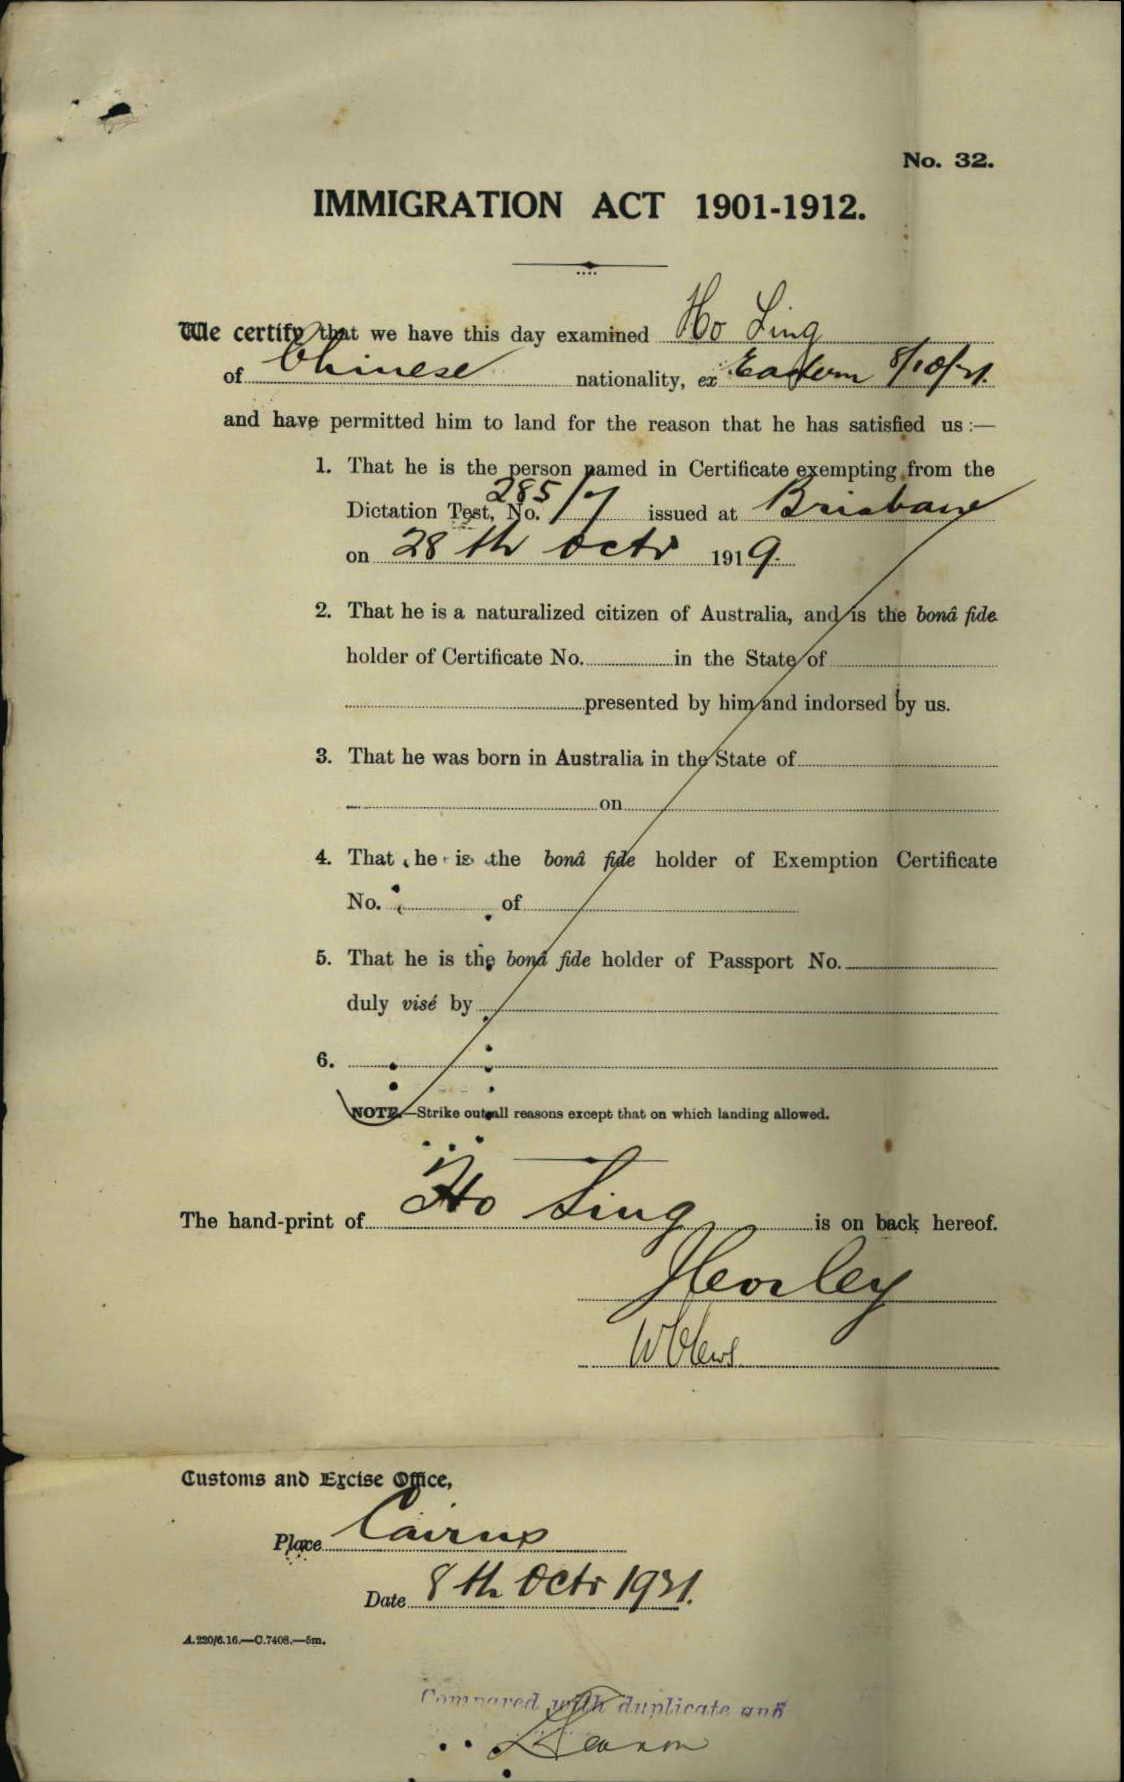 No. 32.
IMMIGRATION ACT 1901-1912.
We certify that we have this day examined Ho Ling
of Chinese nationality, ex Eastern 8/10/21.
and have permitted him to land for the reason that he has satisfied us :—
1. That he is the person named in Certificate exempting from the
Dictation Test, No. 285/ issued at Brisbane
on 28th Octr 1919.
2. That he is a naturalized citizen of Australia, and is the bonâ fide
holder of Certificate No. in the State of
presented by him and indorsed by us.
3. That he was born in Australia in the State of
on
4. That he is the bonâ fide holder of Exemption Certificate
No. of
5. That he is the bonâ fide holder of Passport No.
duly visé by
6.
NOTE.—Strike out all reasons except that on which landing allowed.
The hand-print of Ho Ling is on back hereof.
Customs and Excise Office,
Place Cairns
Date 8th Octr 1921.
A.220/6.16.—C.7408.—5m.
Compared with duplicate and